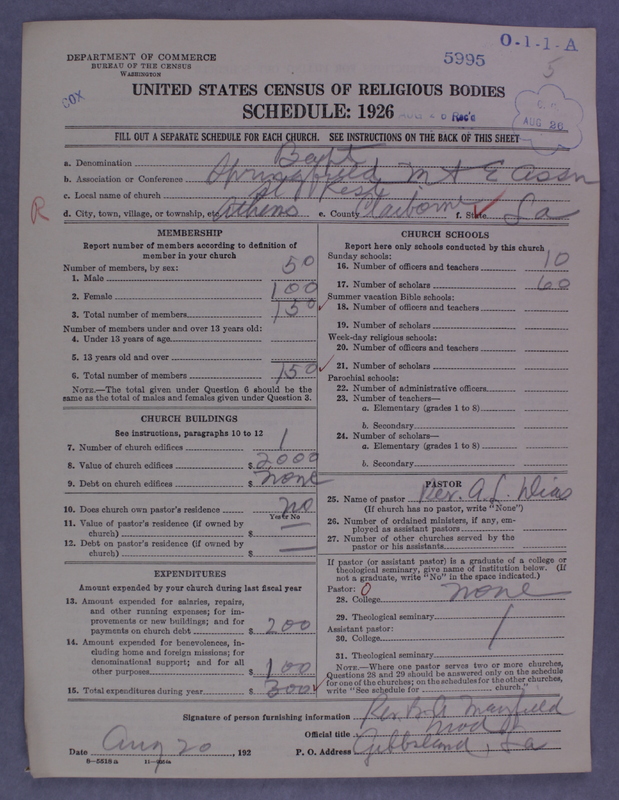 O-1-1-A
5995
5
DEPARTMENT OF COMMERCE
BUREAU OF THE CENSUS
WASHINGTON
COX
UNITED STATES CENSUS OF RELIGIOUS BODIES
SCHEDULE: 1926
Rec'd
AUG 26
FILL OUT A SEPARATE SCHEDULE FOR EACH CHURCH. SEE INSTRUCTIONS ON THE BACK OF THIS SHEET
a. Denomination Bapt
b. Association or Conference Springfield M & E Assn
c. Local name of church St. Rest
R d. City, town, village, or township, etc. Athens e. County Claiborne f. State La
MEMBERSHIP
Report number of members according to definition of
member in your church
Number of members, by sex:
1. Male 50
2. Female 100
3. Total number of members 150
Number of members under and over 13 years old:
4. Under 13 years of age
5. 13 years old and over
6. Total number of members 150
NOTE.—The total given under Question 6 should be the
same as the total of males and females given under Question 3.
CHURCH BUILDINGS
See instructions, paragraphs 10 to 12
7. Number of church edifices 1
8. Value of church edifices $ 2000
9. Debt on church edifices $ none
10. Does church own pastor's residence no
Yes or No
11. Value of pastor's residence (if owned by
church) $ —
12. Debt on pastor's residence (if owned by
church) $ —
EXPENDITURES
Amount expended by your church during last fiscal year
13. Amount expended for salaries, repairs,
and other running expenses; for im-
provements or new buildings; and for
payments on church debt $ 200
14. Amount expended for benevolences, in-
cluding home and foreign missions; for
denominational support; and for all
other purposes $ 100
15. Total expenditures during year $ 300
CHURCH SCHOOLS
Report here only schools conducted by this church
Sunday schools:
16. Number of officers and teachers 10
17. Number of scholars 60
Summer vacation Bible schools:
18. Number of officers and teachers
19. Number of scholars
Week-day religious schools:
20. Number of officers and teachers
21. Number of scholars
Parochial schools:
22. Number of administrative officers
23. Number of teachers—
a. Elementary (grades 1 to 8)
b. Secondary
24. Number of scholars—
a. Elementary (grades 1 to 8)
b. Secondary
PASTOR
25. Name of pastor Rev. A. L.
(If church has no pastor, write "None")
26. Number of ordained ministers, if any, em-
ployed as assistant pastors
27. Number of other churches served by the
pastor or his assistants
If pastor (or assistant pastor) is a graduate of a college or
theological seminary, give name of institution below. (If
not a graduate, write "No" in the space indicated.)
Pastor: 0
28. College none
29. Theological seminary
Assistant pastor:
30. College
31. Theological seminary
NOTE.—Where one pastor serves two or more churches,
Questions 28 and 29 should be answered only on the schedule
for one of the churches; on the schedules for the other churches,
write "See schedule for church."
Signature of person furnishing information Rev. Mayfield
Official title Mod
Date Aug 20, 192 P. O. Address Gibbsland, La
8-5518a